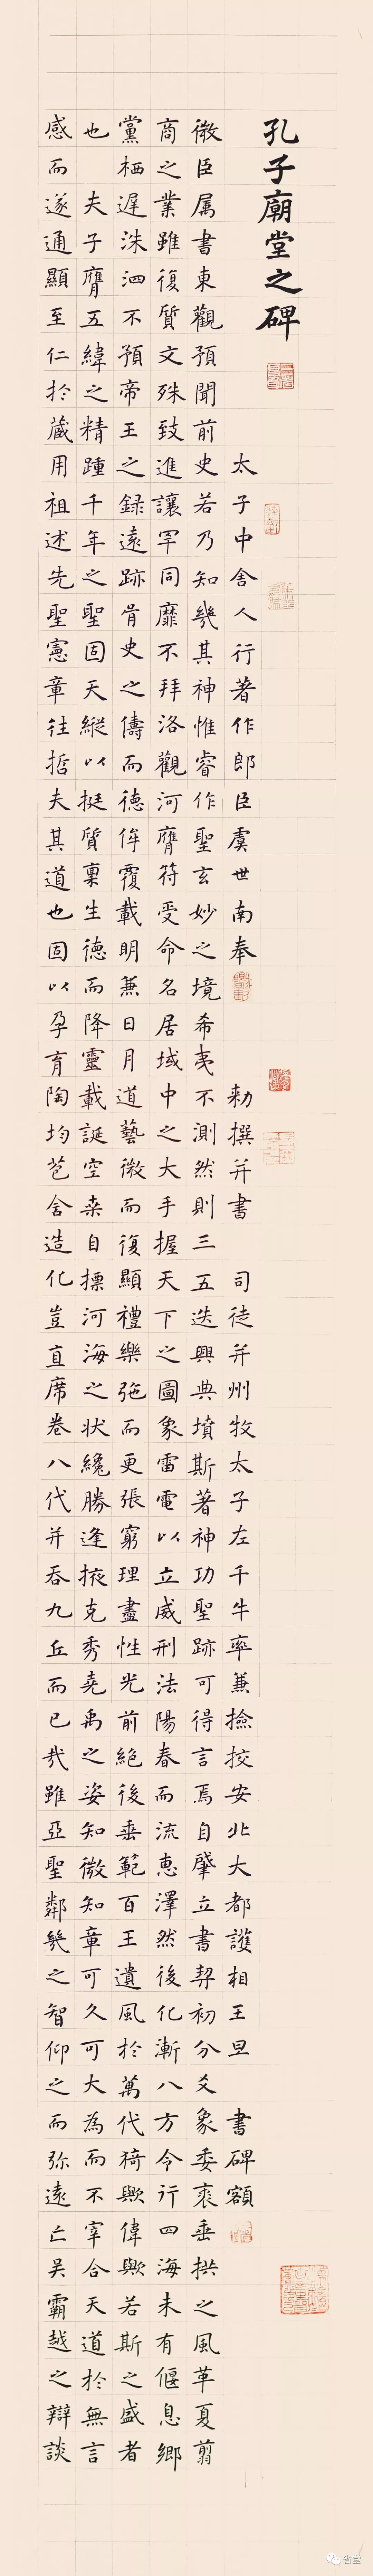 孔子廟堂之碑
太子中舍人行著作郎臣虞世南奉 勅撰并書 司徒并州牧太子左千牛率兼撿挍安北大都護相王旦 書碑額
微臣属書東觀預聞前史若乃知幾其神惟睿作聖玄妙之境希夷不測然則三五迭興典墳斯著神功聖跡可得言焉自肇立書契初分爻象委裘垂拱之風革夏翦
商之業雖復質文殊致進讓罕同靡不拜洛觀河膺符受命名居域中之大手握天下之圖象雷電以立威刑法陽春而流恵澤然後化漸八方令行四海未有偃息鄉
黨栖遲洙泗不預帝王之録遠跡胥史之儔而德侔覆載明兼日月道藝微而復顯禮樂弛而更張窮理盡性光前絕後垂範百王遺風於萬代猗歟偉歟若斯之盛者
也夫子膺五緯之精踵千年之聖固天縱以挺質稟生德而降靈載誕空桒自摽河海之状纔勝逢掖克秀堯禹之姿知微知章可久可大為而不宰合天道於無言
感而遂通顯至仁於蔵用祖述先聖憲章往哲夫其道也固以孕育陶均苞含造化豈直席卷八代并吞九丘而已哉雖亞聖鄰幾之智仰之而弥遠亡吴霸越之辯談
省堂